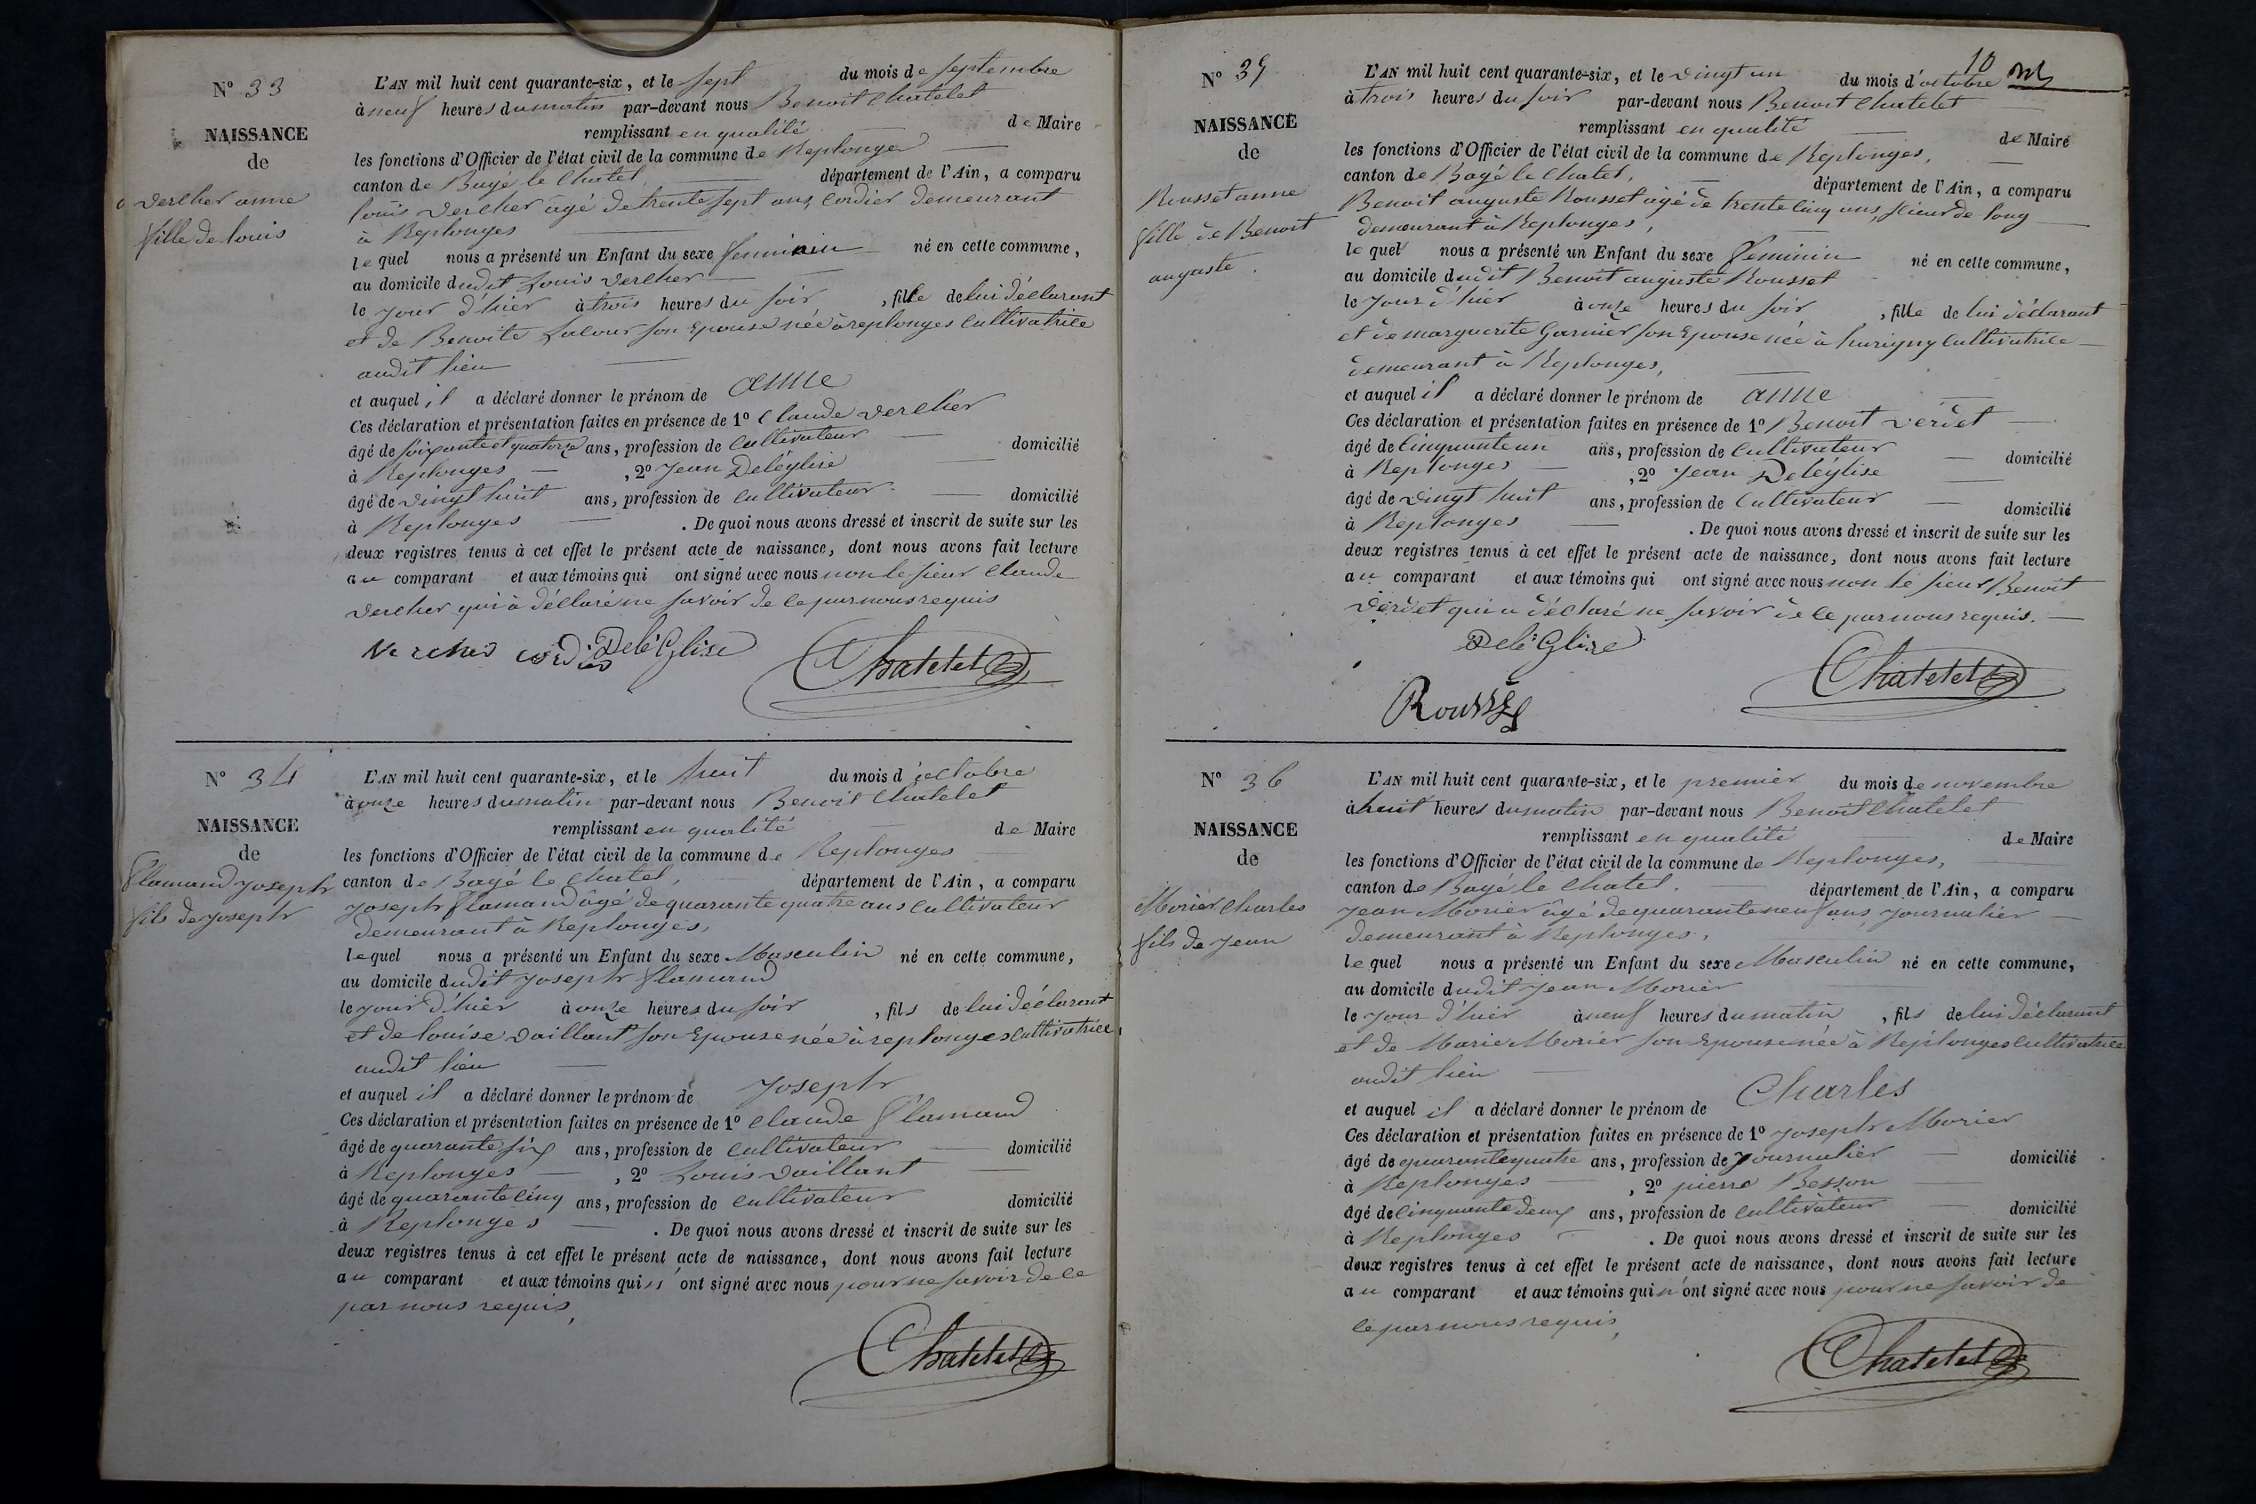 N° 33
NAISSANCE
de
Vercher anne
fille de louis
L'AN mil huit cent quarante-six, et le sept du mois de septembre
à neuf heures du matin par-devant nous Benoit Chatelet
remplissant en qualité de Maire
les fonctions d'Officier de l'état civil de la commune de Replonges
canton de Bagé le Chatel, département de l'Ain, a comparu
louis Vercher âgé de trente sept ans, Cordier demeurant
à Replonges
lequel nous a présenté un Enfant du sexe feminin né en cette commune,
au domicile dudit Louis Vercher
le jour d'hier à trois heures du soir, fille de lui déclarant
et de Benoite Lalour son Epouse née à replonges Cultivatrice
audit lieu
et auquel il a déclaré donner le prénom de anne
Ces déclaration et présentation faites en présence de 1° Claude Vercher
âgé de soixante et quatorze ans, profession de Cultivateur domicilié
à Replonges, 2° Jean Deléglise
âgé de vingt huit ans, profession de Cultivateur domicilié
à Replonges. De quoi nous avons dressé et inscrit de suite sur les
deux registres tenus à cet effet le présent acte de naissance, dont nous avons fait lecture
au comparant et aux témoins qui ont signé avec nous non le sieur Claude
Vercher qui à déclaré ne savoir de ce par nous requis
Delé Glise
Chatelet
N° 34
NAISSANCE
de
Flamand Joseph
fils de Joseph
L'AN mil huit cent quarante-six, et le huit du mois d'octobre
à onze heures du matin par-devant nous Benoit Chatelet
remplissant en qualité de Maire
les fonctions d'Officier de l'état civil de la commune de Replonges
canton de Bagé le Chatel, département de l'Ain, a comparu
Joseph Flamand âgé de quarante quatre ans Cultivateur
demeurant à Replonges,
lequel nous a présenté un Enfant du sexe Masculin né en cette commune,
au domicile dudit Joseph Flamand
le jour d'hier à onze heures du soir, fils de lui déclarant
et de louise Vaillant son Epouse née à replonges Cultivatrice
audit lieu
et auquel il a déclaré donner le prénom de Joseph
Ces déclaration et présentation faites en présence de 1° Claude Flamand
âgé de quarante six ans, profession de Cultivateur domicilié
à Replonges, 2° Louis Vaillant
âgé de quarante cinq ans, profession de Cultivateur domicilié
à Replonges. De quoi nous avons dressé et inscrit de suite sur les
deux registres tenus à cet effet le présent acte de naissance, dont nous avons fait lecture
au comparant et aux témoins qui n'ont signé avec nous pour ne savoir de ce
par nous requis,
Chatelet
10
N° 35
NAISSANCE
de
Rousset anne
fille de Benoit
auguste.
L'AN mil huit cent quarante-six, et le vingt un du mois d'octobre
à trois heures du soir par-devant nous Benoit Chatelet
remplissant en qualité de Maire
les fonctions d'Officier de l'état civil de la commune de Replonges,
canton de Bagé le Chatel, département de l'Ain, a comparu
Benoit auguste Rousset âgé de trente cinq ans, scieur de long
demeurant à Replonges,
lequel nous a présenté un Enfant du sexe feminin né en cette commune,
au domicile dudit Benoit auguste Rousset
le jour d'hier à onze heures du soir, fille de lui déclarant
et de marguerite Garnier son Epouse née à hurigny Cultivatrice
demeurant à Replonges,
et auquel il a déclaré donner le prénom de anne
Ces déclaration et présentation faites en présence de 1° Benoit Verdet
âgé de Cinquante un ans, profession de Cultivateur domicilié
à Replonges, 2° Jean Deléglise
âgé de vingt huit ans, profession de Cultivateur domicilié
à Replonges. De quoi nous avons dressé et inscrit de suite sur les
deux registres tenus à cet effet le présent acte de naissance, dont nous avons fait lecture
au comparant et aux témoins qui ont signé avec nous non le sieur Benoit
Verdet qui a déclaré ne savoir de ce par nous requis.
Delé Glise
Chatelet
N° 36
NAISSANCE
de
Morier Charles
fils de Jean
L'AN mil huit cent quarante-six, et le premier du mois de novembre
à huit heures du matin par-devant nous Benoit Chatelet
remplissant en qualité de Maire
les fonctions d'Officier de l'état civil de la commune de Replonges,
canton de Bagé le Chatel. département de l'Ain, a comparu
Jean Morier âgé de quarante neuf ans, Journalier
demeurant à Replonges,
lequel nous a présenté un Enfant du sexe Masculin né en cette commune,
au domicile dudit Jean Morier
le jour d'hier à neuf heures du matin, fils de lui déclarant
et de Marie Morier son Epouse née à Replonges Cultivatrice
audit lieu
et auquel il a déclaré donner le prénom de Charles
Ces déclaration et présentation faites en présence de 1° Joseph Morier
âgé de quarante quatre ans, profession de Journalier domicilié
à Replonges, 2° pierre Besson
âgé de Cinquante deux ans, profession de Cultivateur domicilié
à Replonges. De quoi nous avons dressé et inscrit de suite sur les
deux registres tenus à cet effet le présent acte de naissance, dont nous avons fait lecture
au comparant et aux témoins qui n'ont signé avec nous pour ne savoir de
ce par nous requis,
Chatelet